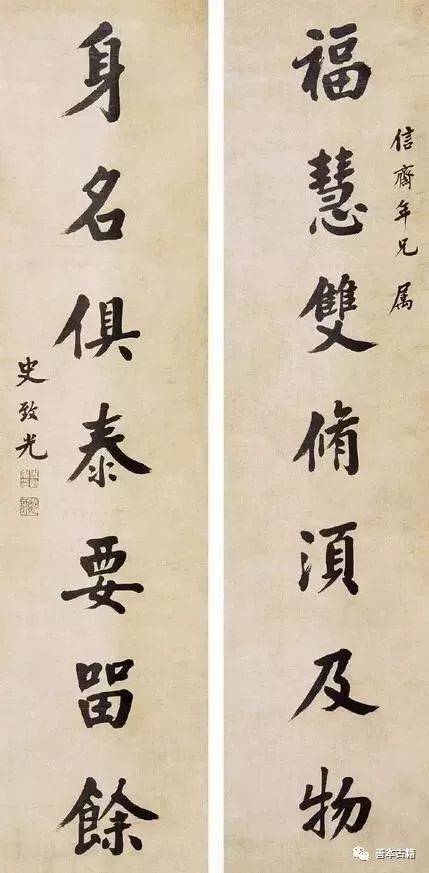 信齋年兄属
福慧雙脩須及物
身名俱泰要畱餘
史致光
善本古籍